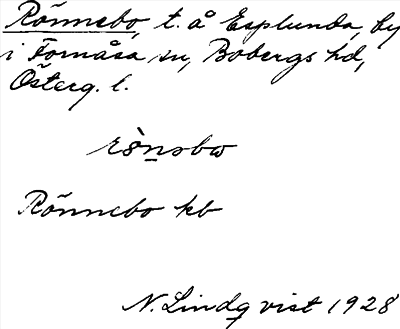 Rönnebo, t. å Esplunda, by
i Fornåsa sn, Bobergs hd,
Österg. l.
rönsbω
Rönnebo kb
N. Lindqvist 1928